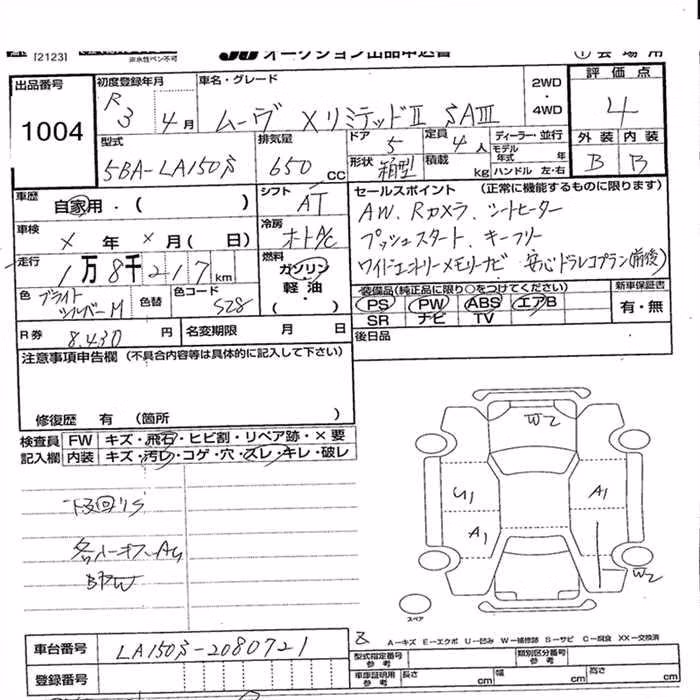 [2123] 油性ペン不可 JU オークション出品申込書 ① 会場用
出品番号 1004
初度登録年月 R3年 4月
車名・グレード ムーヴ XリミテッドⅡ SAⅢ
2WD・4WD
評価点 4
外装 B 内装 B
型式 5BA-LA150S
排気量 650 cc
ドア 5 定員 4人
形状 箱型 積載 kg
ディーラー・並行
モデル年式 年
ハンドル 左・右
車歴 自家用・( )
シフト AT
セールスポイント (正常に機能するものに限ります)
AW、Rカメラ、シートヒーター
プッシュスタート、キーフリー
ワイドエントリーメモリーナビ、安心ドラレコプラン(前後)
車検 × 年 × 月( 日)
冷房 オートA/C
走行 1万8千217km
燃料 ガソリン・軽油・( )
色 ブライトシルバーM 色替 色コード S28
装備品(純正品に限り○をつけてください)
PS PW ABS エアB
SR ナビ TV
新車保証書 有・無
R券 8.430 円 名変期限 月 日
後日品
注意事項申告欄 (不具合内容等は具体的に記入して下さい)
修復歴 有 (箇所 )
検査員記入欄
FW キズ・飛石・ヒビ割・リペア跡・×要
内装 キズ・汚レ・コゲ・穴・スレ・キレ・破レ
W2
U1
A1
A1
W2
下回りS
BPW
スペア
A-キズ E-エクボ U-凹み W-補修跡 S-サビ C-腐食 XX-交換済
車台番号 LA150S-2080721
登録番号
型式指定番号 参考 類別区分番号 参考
車庫証明用 参考 長さ cm 幅 cm 高さ cm